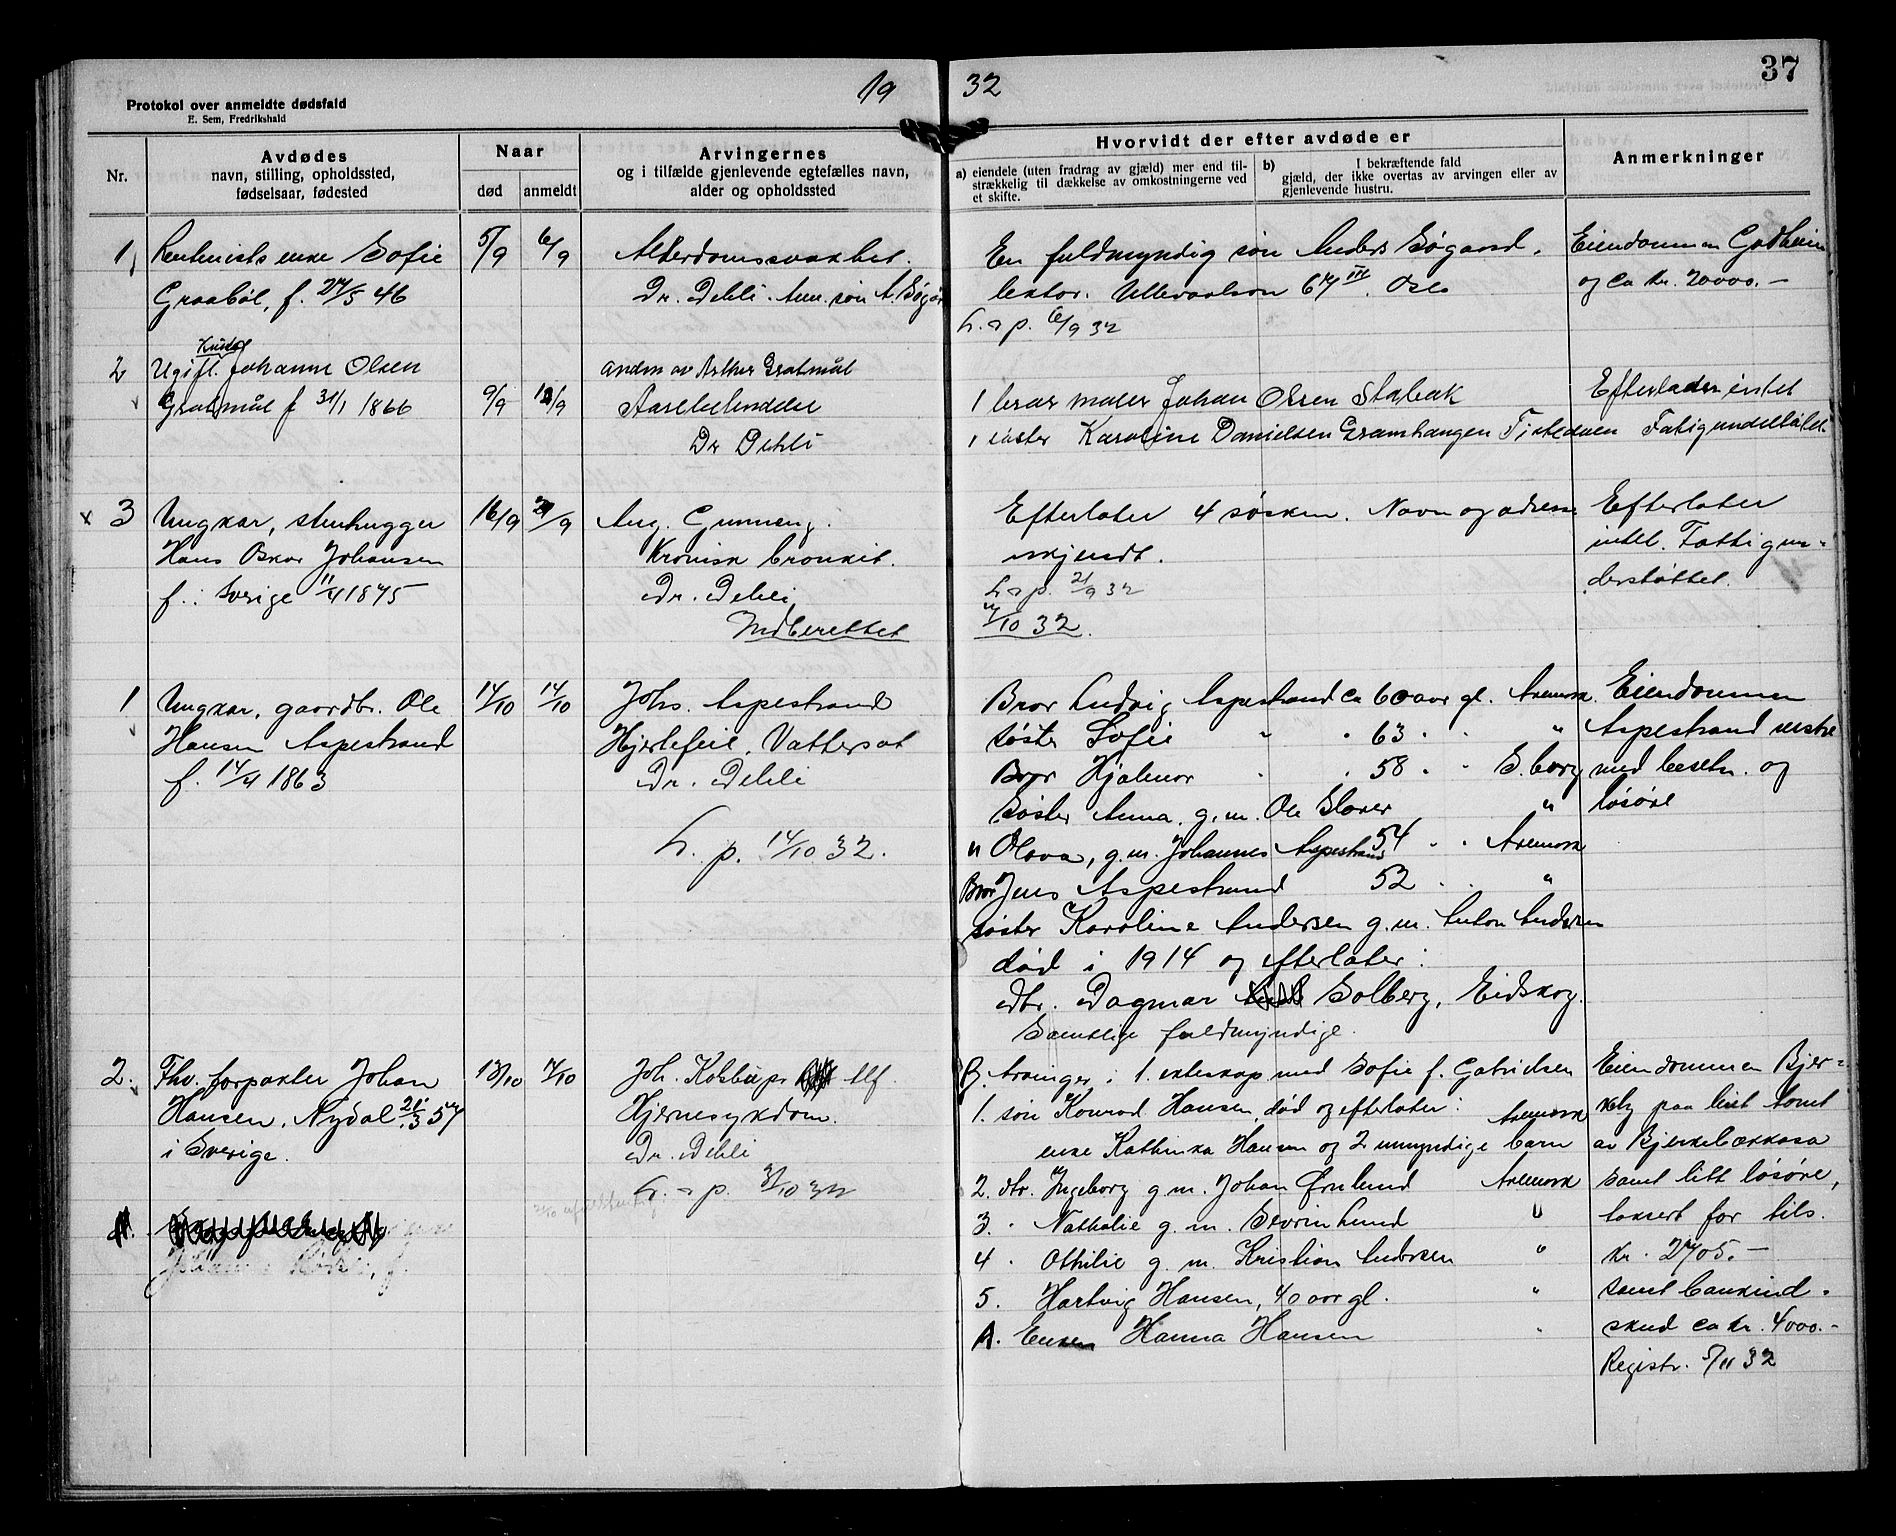 19 32
37
Protokol over anmeldte dødsfald
E. Sem, Fredrikshald
Nr.
Avdødes
navn, stilling, opholdssted,
fødselsaar, fødested
Naar
død
anmeldt
Arvingernes
og i tilfælde gjenlevende egtefælles navn,
alder og opholdssted
Hvorvidt der efter avdøde er
a) eiendele (uten fradrag av gjæld) mer end til-
strækkelig til dækkelse av omkostningerne ved
et skifte.
b) I bekræftende fald
gjæld, der ikke overtas av arvingen eller av
gjenlevende hustru.
Anmerkninger
1, Rentenists enke Sofie
Graabøl, f. 27/5 46
5/9 6/9
Alderdomssvakhet.
Dr. Dehli. Anm. søn A. Søgår
En fuldmyndig søn Anders Søgaard,
lektor. Ullevaalsvn 67 III. Oslo
L. a p. 6/9 32
Eiendommen Godheim
og ca kr. 20000.-
2 Ugift Johanne Olsen
Gratmül f 31/1 1866
9/9
andm av Arthur Gratmül
Dr Dehli
1 bror maler Johan Olsen Stabæk
1 søster Karoline Danielsen Gramhaugen Tistedalen
Efterlader intet
Fatigunderstøttet
x 3 Ungkar, stenhugger
Hans Oskar Johansen
f. i Sverige 11/4 1875
16/9 21/9
Aug. Gunneng.
Kronisk bronkit.
Dr. Dehli
Indberettet
Efterlater 4 søsken. Navn og adresse
ukjendt.
L a p. 21/9 32
7/10 32.
Efterlater
intet. Fattigun-
derstøttet.
1 Ungkar, gaardbr. Ole
Hansen Aspestrand
f. 14/4 1863
14/10 14/10
Johs. Aspestrand
Hjertefeil. Vattersot
Dr. Dehli
L. p. 14/10 32.
Bror Ludvig Aspestrand ca 60 aar gl. Aremark
Søster Sofie " " 63 " " "
Bror Hjalmar " " 58 " " S.borg
Søster Anna, g. m. Ole "
" Olava, g. m. Johannes Aspestrand 54 " " Aremark
Bror Jens Aspestrand 52 " "
Søster Karoline Andersen g. m. Anton Andersen
død i 1914 og efterlater:
dtr. Dagmar Solberg, Eidskog.
Samtlige fuldmyndige.
Eiendommen
Aspestrand vestre
med besetn. og
løsøre
2. Fhv. forpakter Johan
Hansen, Nydal 21/3 57
i Sverige.
13/10 17/10
Joh. Kolstrup tlf.
Hjernesykdom.
Dr. Dehli
L. a p.
B. Arvinger i 1. ekteskap med Sofie f. Gabrielsen
1. søn Konrad Hansen, død og efterlater: Aremark
enke Kathinka Hansen og 2 umyndige barn
2. dtr. Ingeborg g m. Johan Ørnlund Aremark
3 " Nathalie g. m. Sevrin Lund "
4 " Othilie g. m. Kristian Andersen "
5. Hartvig Hansen, 40 aar gl. "
A. Enken Hanna Hansen "
Eiendommen Bjer-
kely paa leiet tomt
av Bjerkebækkasa
samt litt løsøre,
taksert for tils.
kr. 2705.-
samt bankind-
skud ca kr. 4000.-
Registr. 5/11 32